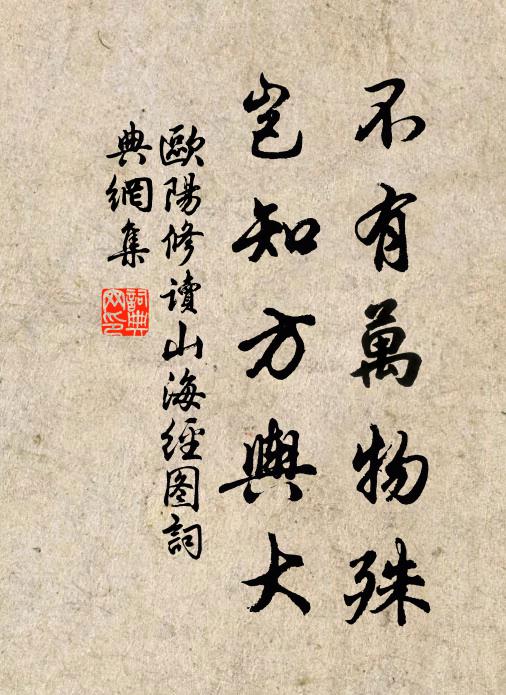 不有萬物殊
豈知方輿大
歐陽修讀山海經图詞
典網集
詞典
网印